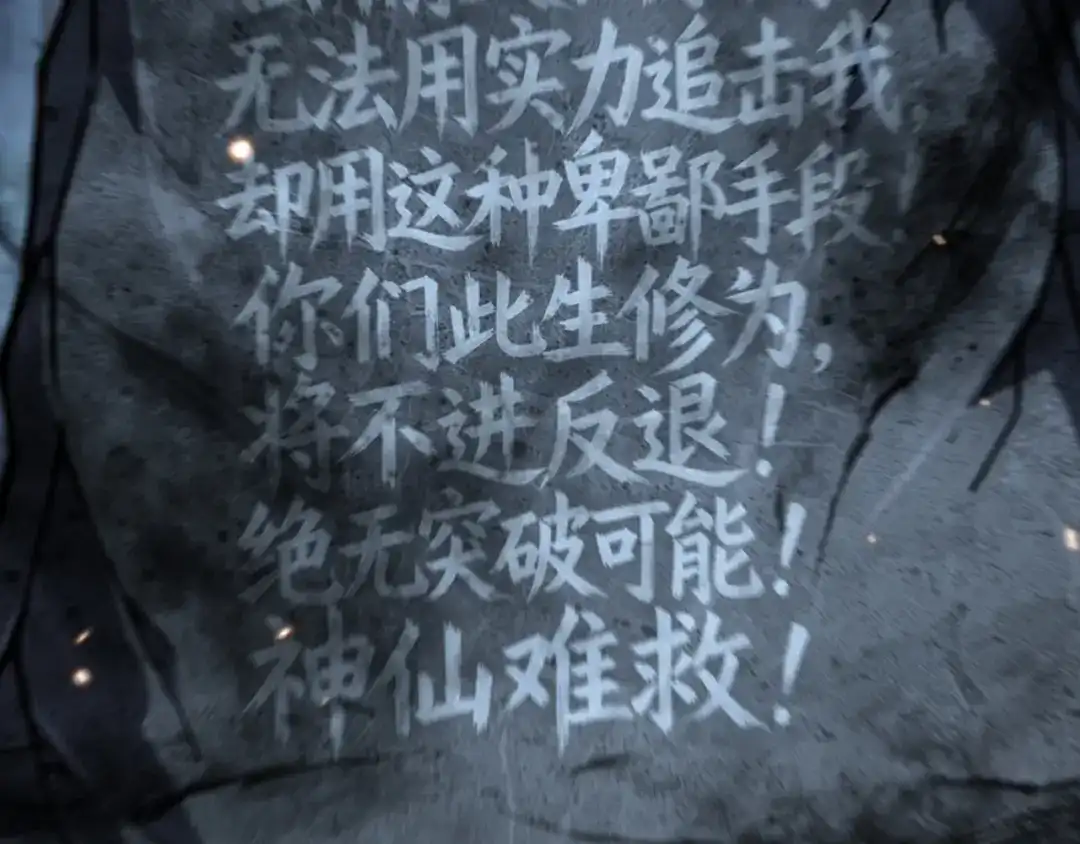 无法用实力追击我，
却用这种卑鄙手段！
你们此生修为，
将不进反退！
绝无突破可能！
神仙难救！